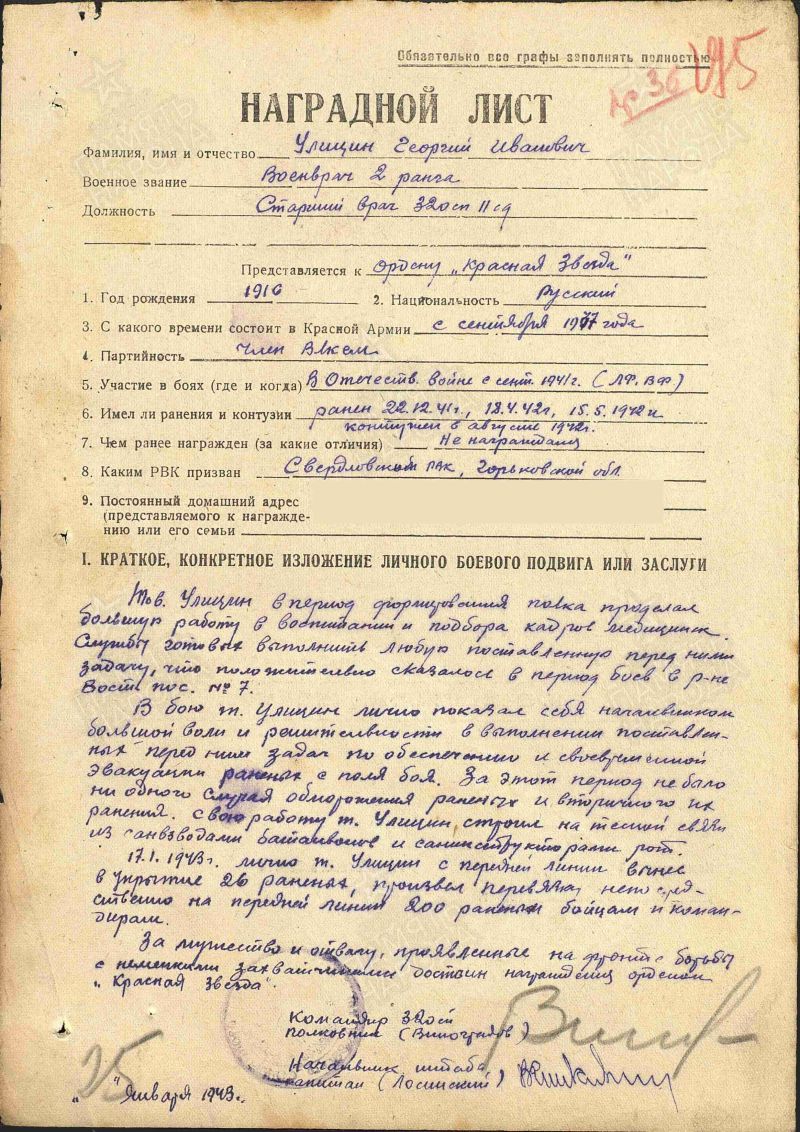 Обязательно все графы заполнять полностью
НАГРАДНОЙ ЛИСТ
Фамилия, имя и отчество Улицин Георгий Иванович
Военное звание Военврач 2 ранга
Должность Старший врач 320сп 11сд
Представляется к ордену „Красная Звезда"
1. Год рождения 1916 2. Национальность Русский
3. С какого времени состоит в Красной Армии с сентября года
4. Партийность член ВЛКСМ
5. Участие в боях (где и когда) В Отечеств. войне с сент. 1941г. (ЛФ. ВФ.)
6. Имел ли ранения и контузии ранен 22.12.41г., 18.4.42г, 15.5.1942 и
контужен в августе 1942г.
7. Чем ранее награжден (за какие отличия) Не награждался
8. Каким РВК призван Свердловском РВК, Горьковской обл.
9. Постоянный домашний адрес
(представляемого к награжде-
нию или его семьи
I. КРАТКОЕ, КОНКРЕТНОЕ ИЗЛОЖЕНИЕ ЛИЧНОГО БОЕВОГО ПОДВИГА ИЛИ ЗАСЛУГИ
Тов. Улицин в период формирования полка проделал
большую работу в воспитании и подбора кадров медицинск.
Службы готовых выполнить любую поставленную перед ними
задачу, что положительно сказалось в период боев в р-не
Вост. пос. № 7.
В бою т. Улицин лично показал себя начальником
большой воли и решительности в выполнении поставлен-
ных перед ним задач по обеспечению и своевременной
эвакуации раненых с поля боя. За этот период не было
ни одного случая обморожения раненых и вторичного их
ранения. Свою работу т. Улицин строил на тесной связи
из санвзводами баталионов и санинструкторами рот.
17.1.1943г. лично т. Улицин с передней линии вынес
в укрытие 26 раненых, произвел перевязку непосред-
ственно на передней линии 200 раненым бойцам и коман-
дирам.
За мужество и отвагу, проявленные на фронте борьбы
с немецкими захватчиками достоин награждения орденом
„Красная Звезда".
Командир 320сп
полковник (Виноградов)
Начальник штаба
капитан (Лосинский)
25
" " Января 1943г.